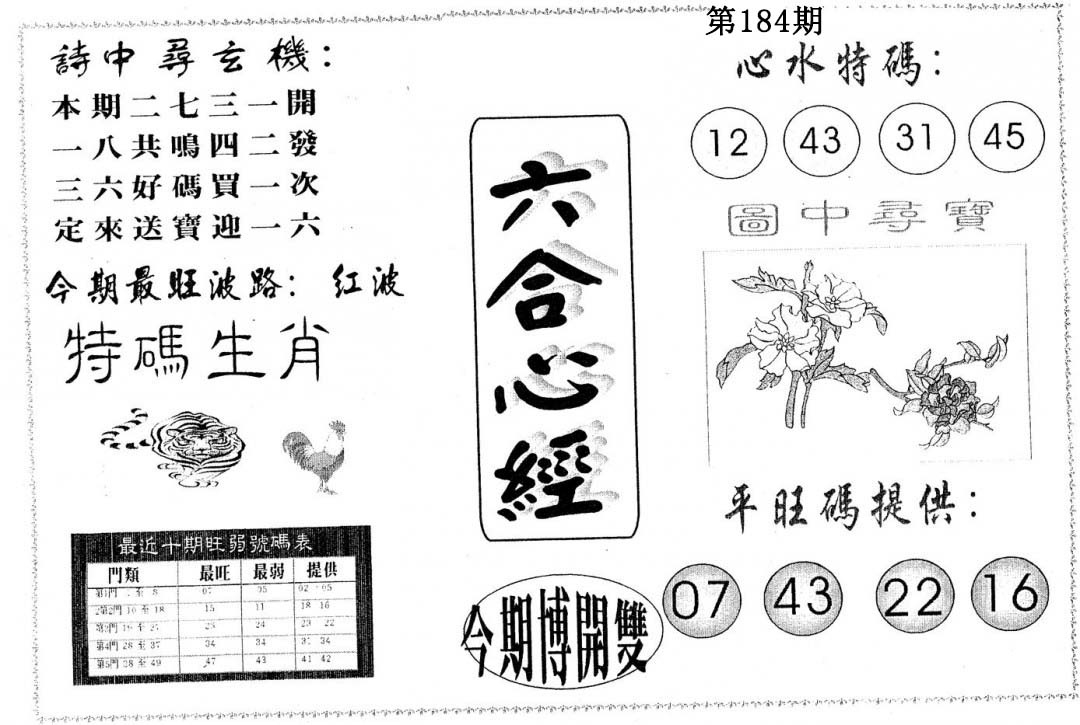 第184期
詩中尋玄機：
本期二七三一開
一八共鳴四二發
三六好碼買一次
定來送寶迎一六
今期最旺波路： 红波
特碼生肖
最近十期旺弱號碼表
門類 最旺 最弱 提供
至 05
第2門 10 至 18 15 11 18 16
24 23 22
第4門 28 至 37 34 34 34
第5門 38 至 49 47 43 41 42
六合心經
今期博開雙
心水特碼：
12 43 31 45
圖中尋寶
平旺碼提供：
07 43 22 16